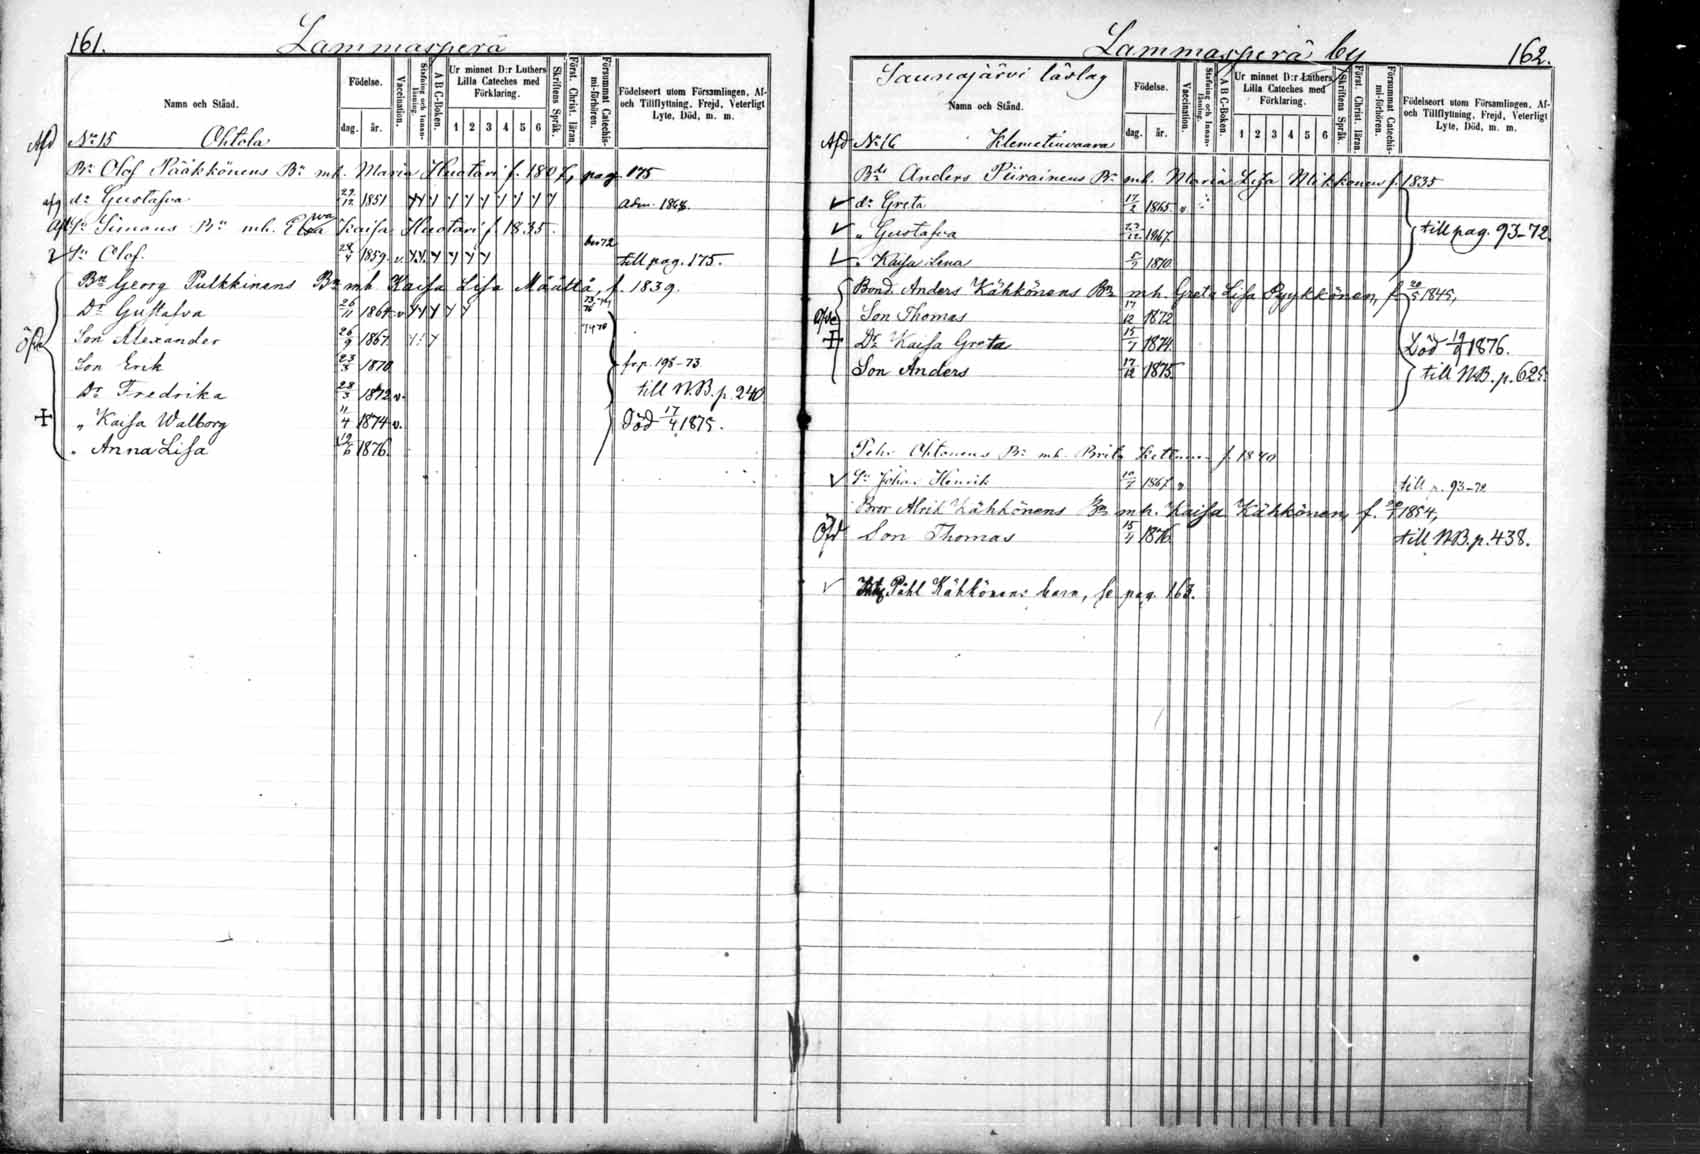 161. Lammasperä
Namn och Stånd.
Födelse.
dag. år.
Vaccination.
Stafning och Innanläsning.
A B C-Boken.
Ur minnet D:r Luthers Lilla Cateches med Förklaring.
1 2 3 4 5 6
Skriftens Språk.
Först. Christ. läran.
Försummat Catechismi-förhören.
Födelseort utom Församlingen, Af- och Tillflyttning, Frejd, Veterligt Lyte, Död, m. m.
Afd No 15 Ohtola
Bn Olof Pääkkönens Bn mh. Maria Huotari f. 180 pag 175
afg dr Gustafva 27/12 1851 adm. 1868.
Sn Simons Bn mh. Ewa Kaisa Huotari f. 1835
Sn Olof. 28/4 1859 v. 72 till pag. 175.
Bn Georg Pulkkinens Bn mh Kaisa Lisa Määttä, f. 1839.
Dr Gustafva 26/11 1864 v
Son Alexander 26/9 1867
Son Erik 23/3 1870 frp. 198-73
Dr Fredrika 28/3 1872 v. till N.B. p. 240
+ „ Kaisa Walborg 11/4 1874 v. Död 17/4 1875.
„ Anna Lisa 19/6 1876.
Lammasperä by 162.
Saunajärvi läslag
Namn och Stånd.
Födelse.
dag. år.
Vaccination.
Stafning och Innanläsning.
A B C-Boken.
Ur minnet D:r Luthers Lilla Cateches med Förklaring.
1 2 3 4 5 6
Skriftens Språk.
Först. Christ. läran.
Försummat Catechismi-förhören.
Födelseort utom Församlingen, Af- och Tillflyttning, Frejd, Veterligt Lyte, Död, m. m.
Afd No 16 Klemetinvaara
Bds Anders Piirainens Bn mh. Maria Lisa Mikkonen f. 1835
dr Greta 17/2 1865 v
„ Gustafva 27/12 1867. till pag. 93-72.
„ Kaisa Lena 5/7 1870
Bond. Anders Kähkönens Bn mh. Greta Lisa Pyykkönen, f. 20/5 1845,
Son Thomas 17/12 1872
+ Dr Kaisa Greta 15/7 1874 Död 19/9 1876.
Son Anders 17/12 1875 till N.B. p. 625.
Ohtonens Bn mh. Brita f. 1840
Sn Johan Henrik 10/7 1867 v till p. 93-72
Bror Alrik Kähkönens Bn mh. Kaisa Kähkönen, f. 1854,
Öfd Son Thomas 15/4 1876 till N.B. p. 438.
Påhl Kähkönens barn, se pag. 163.